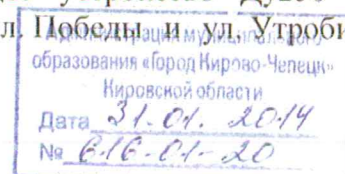 л. Победы и ул. Утроби
Администрация муниципального
образования «Город Кирово-Чепецк»
Кировской области
Дата 31.01.2014
№ 616-01-20